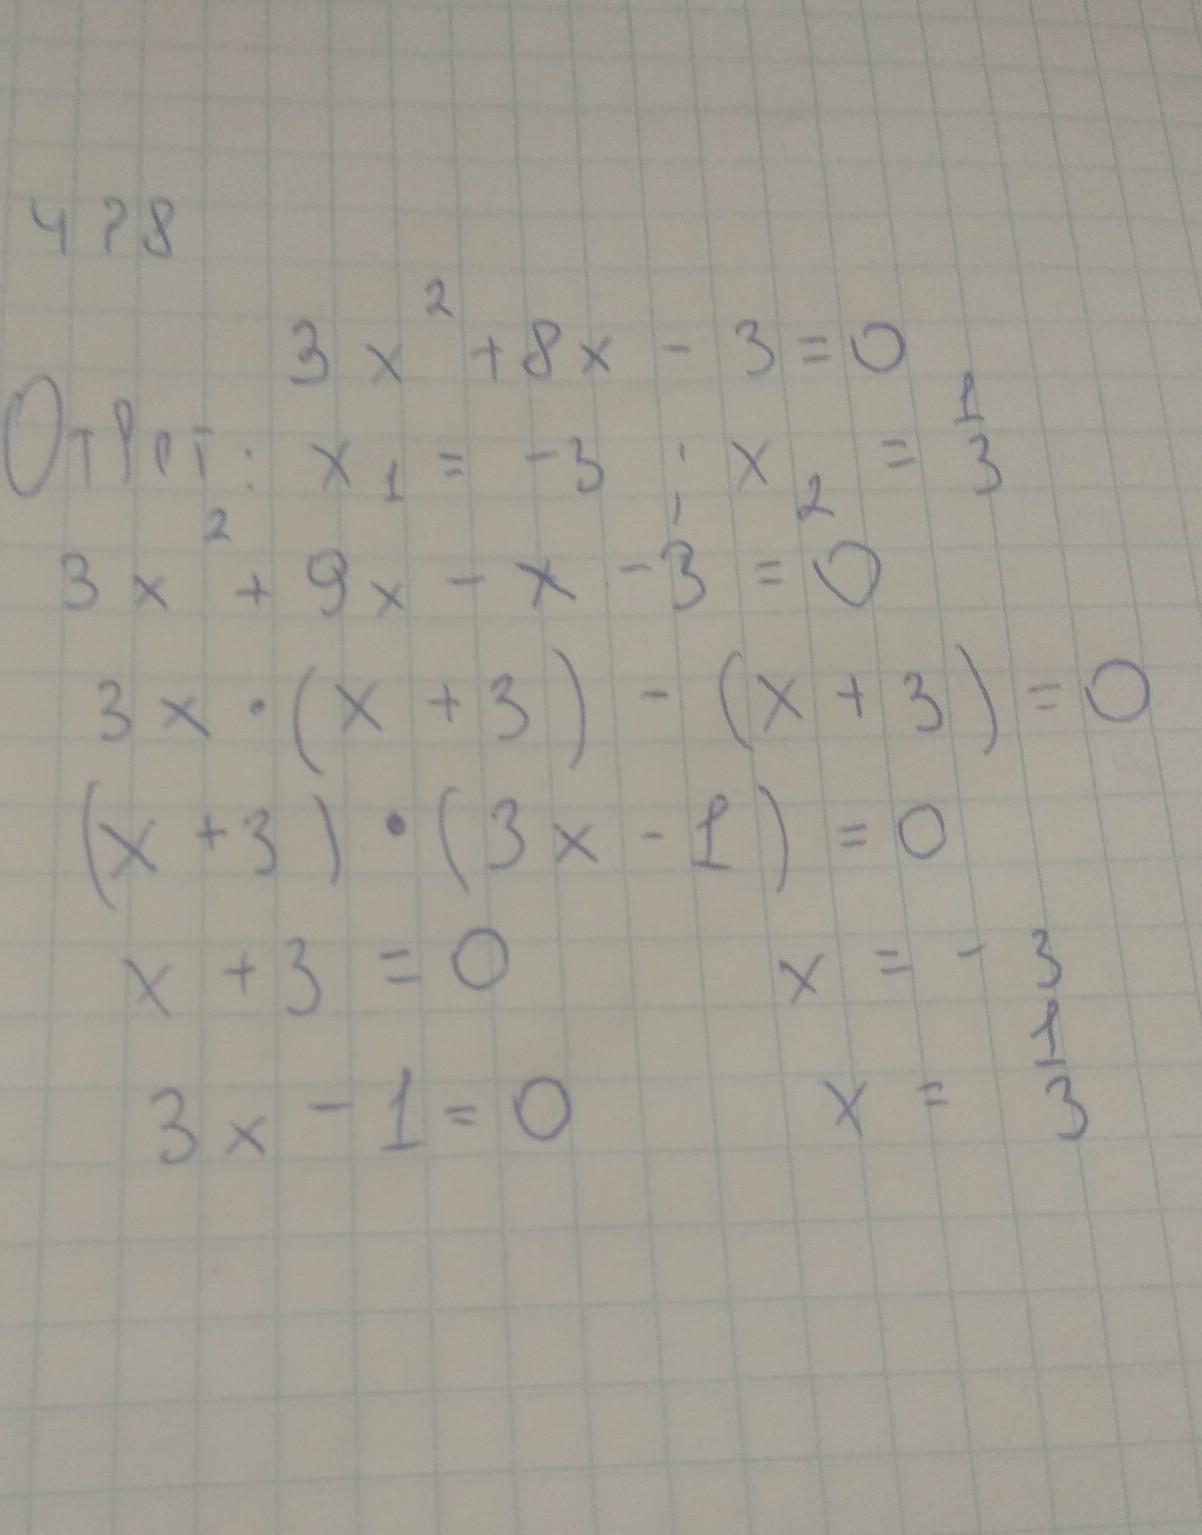 478
3x² + 8x - 3 = 0
Ответ: x₁ = -3 ; x₂ = 1/3
3x² + 9x - x - 3 = 0
3x · (x + 3) - (x + 3) = 0
(x + 3) · (3x - 1) = 0
x + 3 = 0 x = - 3
3x - 1 = 0 x = 1/3